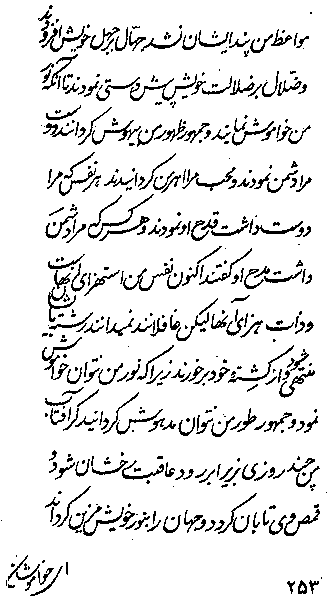 مواعظ من پند ایشان نشد جهّال بر جهل خویش افزودند
و ضلال بر ضلالت خویش پیش دستی نمودند تا آنکه نور
من خاموش نمایند و جمهور ظهور من بیهوش گردانند دوست
مرا دشمن نمودند و محب مرا اهرمن گردانیدند هر نفس که مرا
دوست داشت قدح او نمودند و هر کس که مرا دشمن
داشت مدح او گفتند اکنون نفس من استهزای آنهاست
و ذات من هزای آنها لیکن غافلانند نمیدانند
منتهی شود و از کِشتهٔ خود برخورند زیرا که نور من نتوان خواموش
نمود و جمهور طور من نتوان مدهوش گردانید گر آفتاب
پس چند روزی زیر ابر رود عاقبت رخشان شود و
قمص وی تابان گردد و جهان را بنور خویش مزین گرداند
ای
۲۵۳